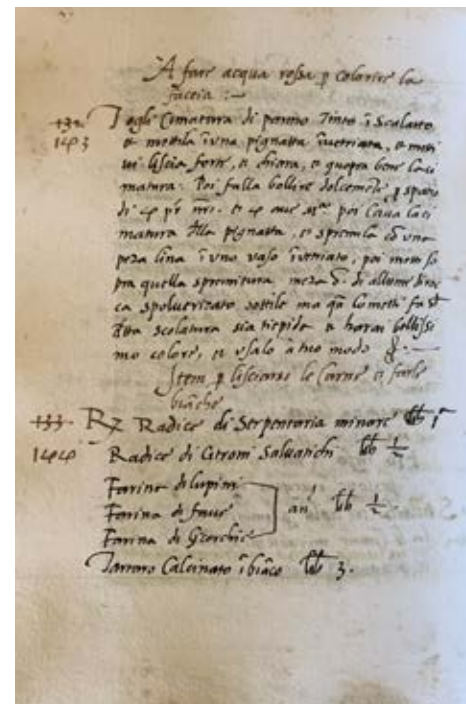 A fare acqua rossa p colorire la
faccia :—
132 Togli Cimatura di panno Tinto ĩ Scalatto
143 et mettila ĩ una pignatta ĩvetriata, et metti
vi liscia forte, et chiara, et cuopra bene la ci
matura: Poi falla bollire dolcemẽte p spatio
di 4 et 4 ave poi Cava la ci
matura della pignatta, et spremila cõ una
peza lina ĩ uno vaso ĩvetriato, poi metti so
pra quella spremitura meza di allume di roc
ca spolverizato sottile ma qñ lo metti fa
scolatura sia tiepida et harai bellissi
mo colore, et usalo à tuo modo
Item p lisciarsi le Carne et farle
biãche
133 Rz Radice di Serpentaria minore lb 1ª
144 Radice di Citroni Salvatichi lb ½
Farina di lupini
Farina di fave an' lb ½
Farina di Cicerchie
Tartaro Calcinato ĩ biãco lb 3.